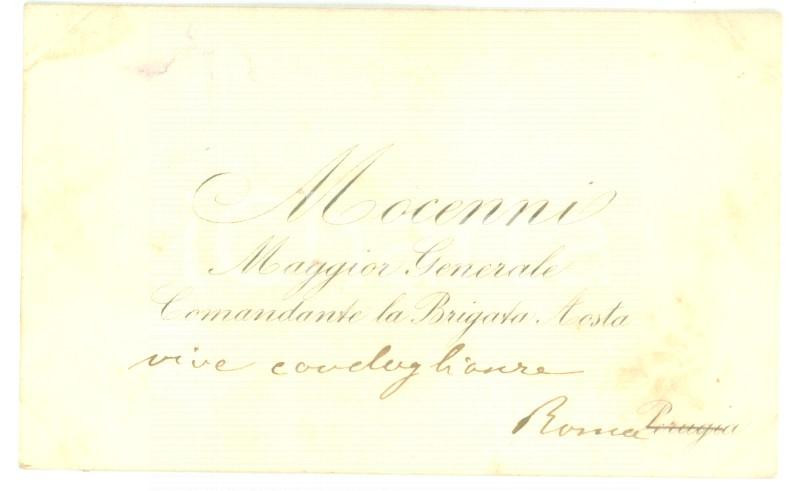 Mocenni
Maggior Generale
Comandante la Brigata Aosta
vive condoglianze
Roma Perugia